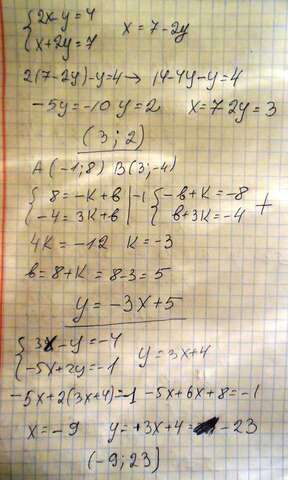 {2x-y=4
{x+2y=7 x=7-2y
2(7-2y)-y=4→ 14-4y-y=4
-5y=-10 y=2 x=7-2y=3
(3;2)
A(-1;8) B(3;-4)
{8=-к+в |-1 {-в+к=-8
{-4=3к+в { в+3к=-4 +
4к=-12 к=-3
в=8+к=8-3=5
y=-3x+5
{3x-y=-4
{-5x+2y=-1 y=3x+4
-5x+2(3x+4)=-1 -5x+6x+8=-1
x=-9 y=3x+4= -23
(-9;23)